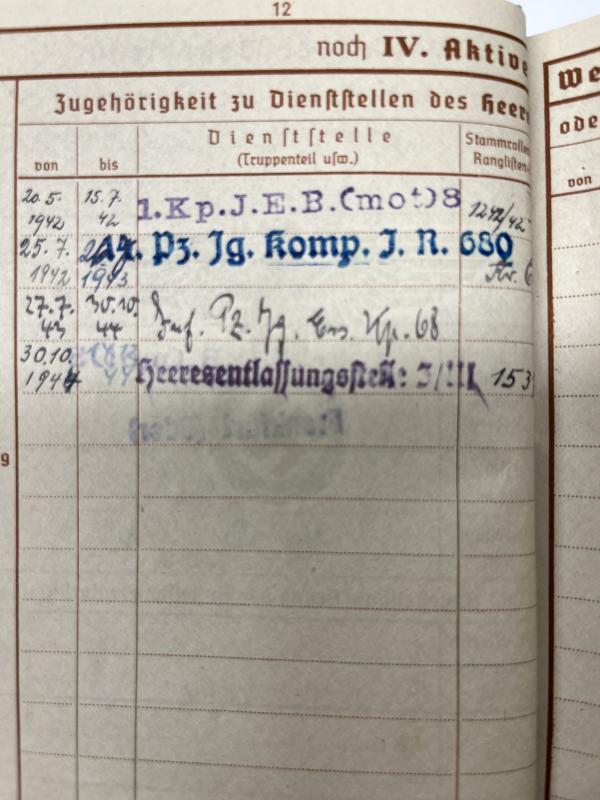 12
noch IV. Aktive
Zugehörigkeit zu Dienststellen des Heer
von
bis
Dienststelle
(Truppenteil usw.)
Stammrollen
Ranglisten-
20.5. 1942
15.7. 42
1.Kp.J.E.B.(mot)8
1242/42
25.7. 1942
1943
14. Pz. Jg. Komp. J. R. 680
Nr. 6
27.7. 43
30.10. 44
Inf. Pz. Jg. Ers. Kp. 68
30.10. 1944
Heeresentlassungsstelle 3/III
153
9
We
ode
von